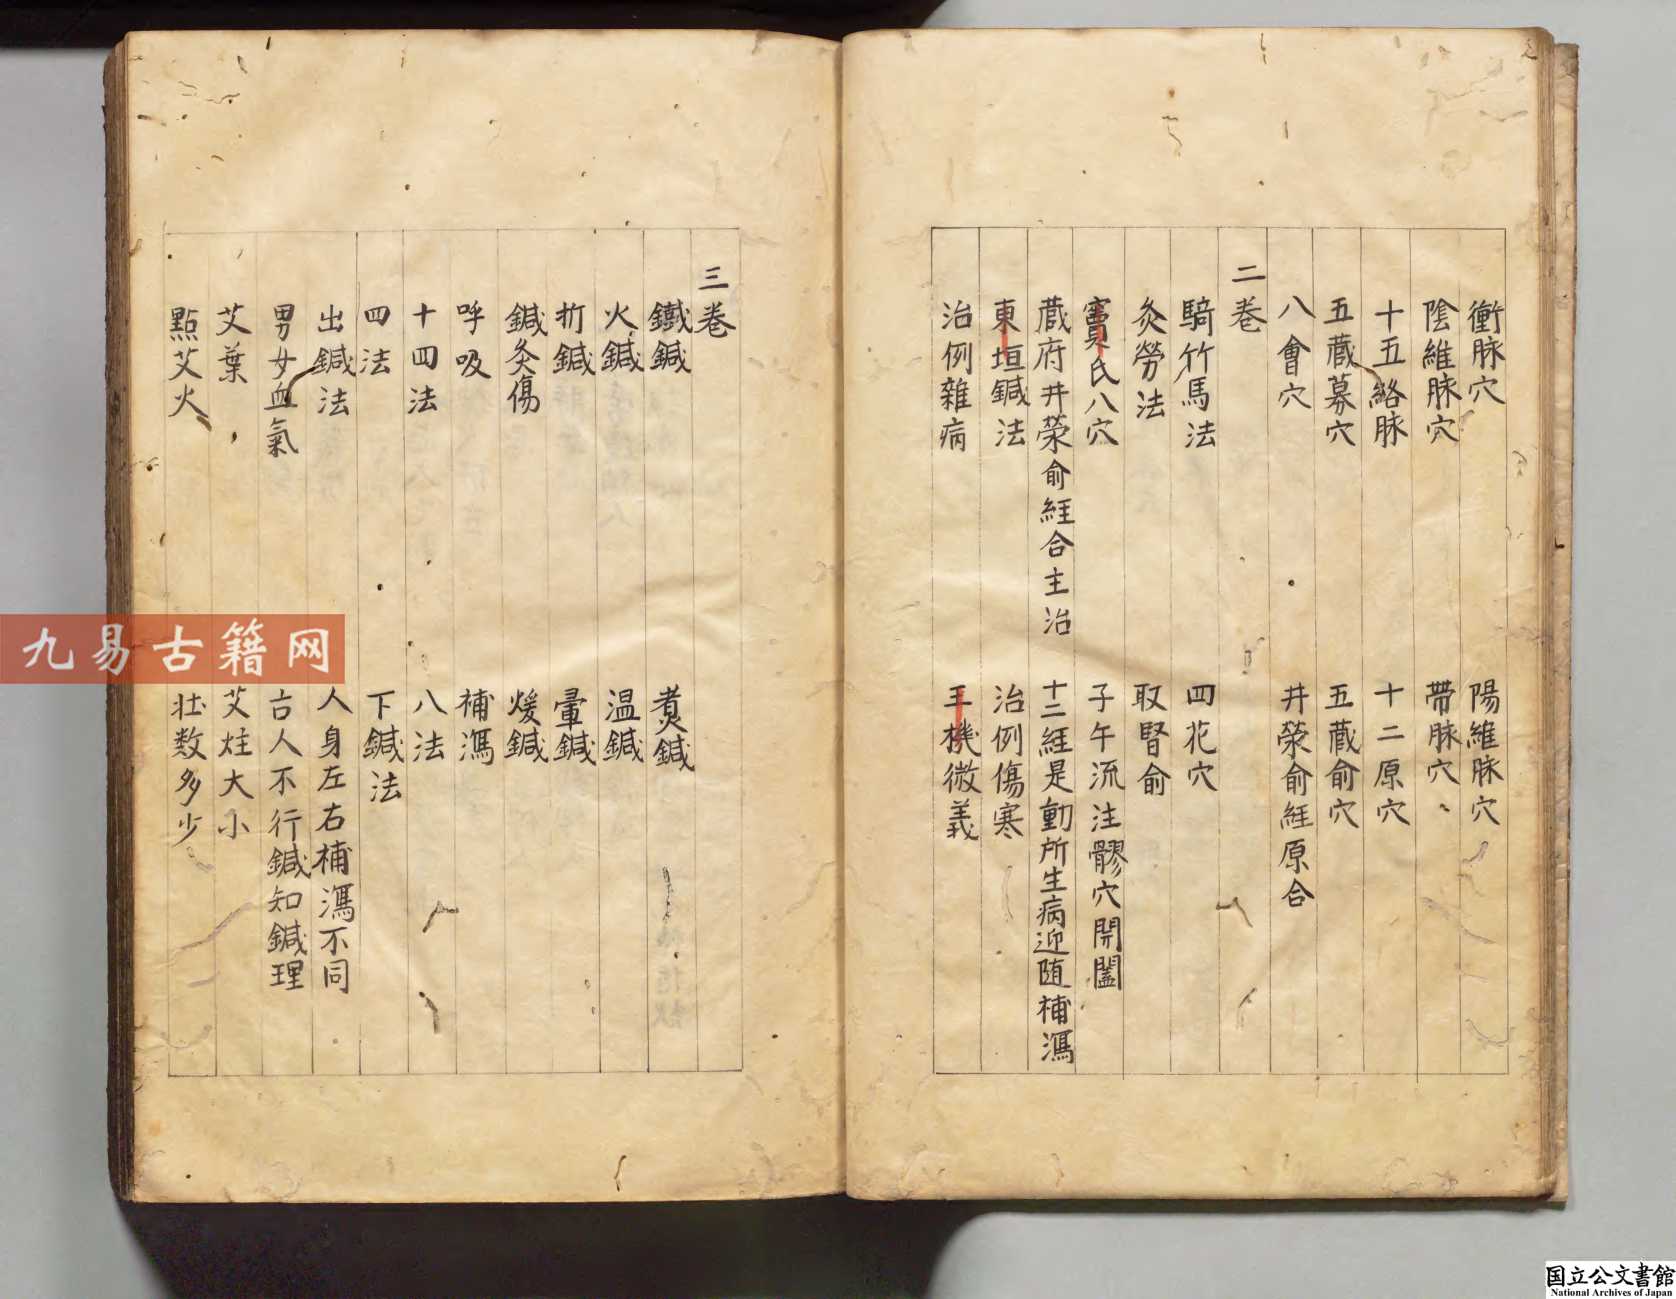 衝脉穴 陽維脉穴
陰維脉穴 帶脉穴
十五絡脉 十二原穴
五蔵募穴 五蔵俞穴
八會穴 井滎俞経原合
二卷
騎竹馬法 四花穴
灸勞法 取腎俞
竇氏八穴 子午流注髎穴開闔
蔵府井滎俞経合主治 十二経是動所生病迎随補瀉
東垣鍼法 治例傷寒
治例雜病 玉機微義
三卷
鐵鍼 煮鍼
火鍼 温鍼
折鍼 暈鍼
鍼灸傷 煖鍼
呼吸 補瀉
十四法 八法
四法 下鍼法
出鍼法 人身左右補瀉不同
男女血氣 古人不行鍼知鍼理
艾葉 艾炷大小
點艾火 壮数多少
九易古籍网
国立公文書館
National Archives of Japan